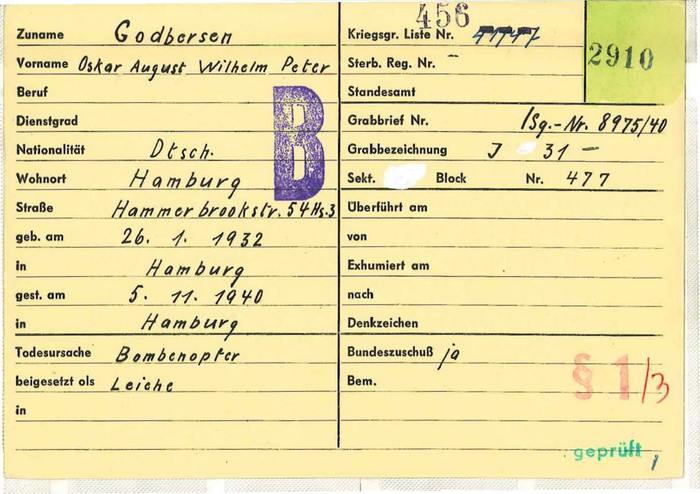 456
Zuname Godbersen
Kriegsgr. Liste Nr.
2910
Vorname Oskar August Wilhelm Peter
Sterb. Reg. Nr. -
Beruf
Standesamt
B
Dienstgrad
Grabbrief Nr. ISg.-Nr. 8975/40
Nationalität Dtsch.
Grabbezeichnung J 31 -
Wohnort Hamburg
Sekt. Block Nr. 477
Straße Hammerbrookstr. 54 Hs.3
Überführt am
geb. am 26. 1. 1932
von
in Hamburg
Exhumiert am
gest. am 5. 11. 1940
nach
in Hamburg
Denkzeichen
Todesursache Bombenopfer
Bundeszuschuß ja
beigesetzt als Leiche
Bem.
§ 1/3
in
geprüft